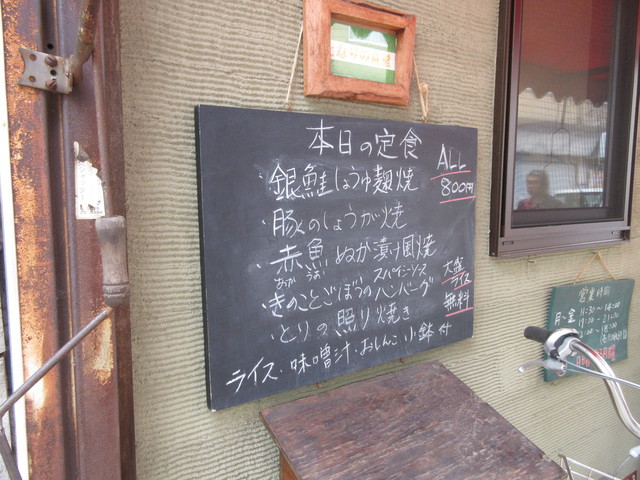 本日の定食
ALL
800円
・銀鮭しょうゆ麹焼
・豚のしょうが焼
・赤魚ぬか漬け風焼
あか うお
スパイシーソース
・きのことごぼうのハンバーグ
・とりの照り焼き
大盛
ライス
無料
ライス・味噌汁・おしんこ 小鉢付
営業時間
月〜金
11:30〜14:00